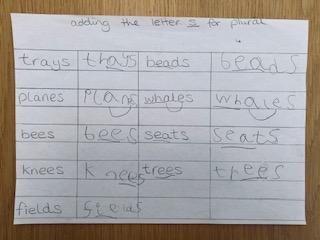 adding the letter s for plural
trays thays beads beads
planes Plans whales whales
bees bees seats seats
knees knees trees trees
fields fields